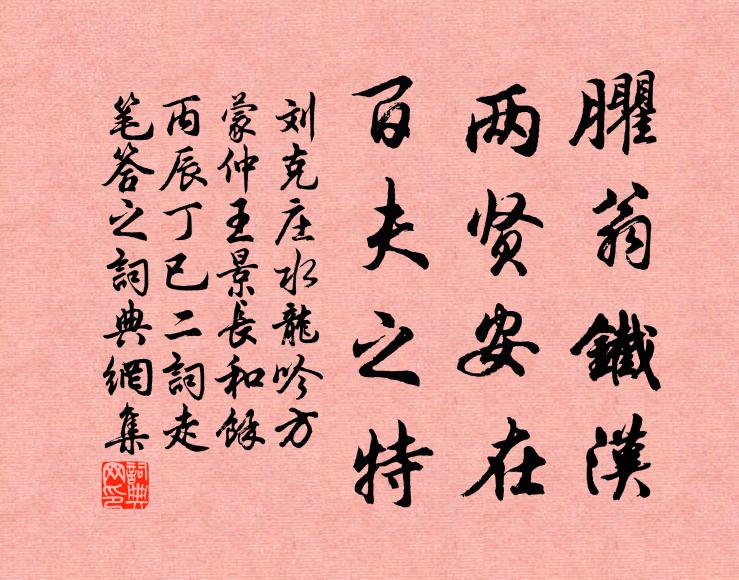 臞翁鐵漢
两贤安在
百夫之特
刘克庄水龍吟方
蒙仲王景長和餘
丙辰丁巳二詞走
笔答之詞典網集
詞典網印